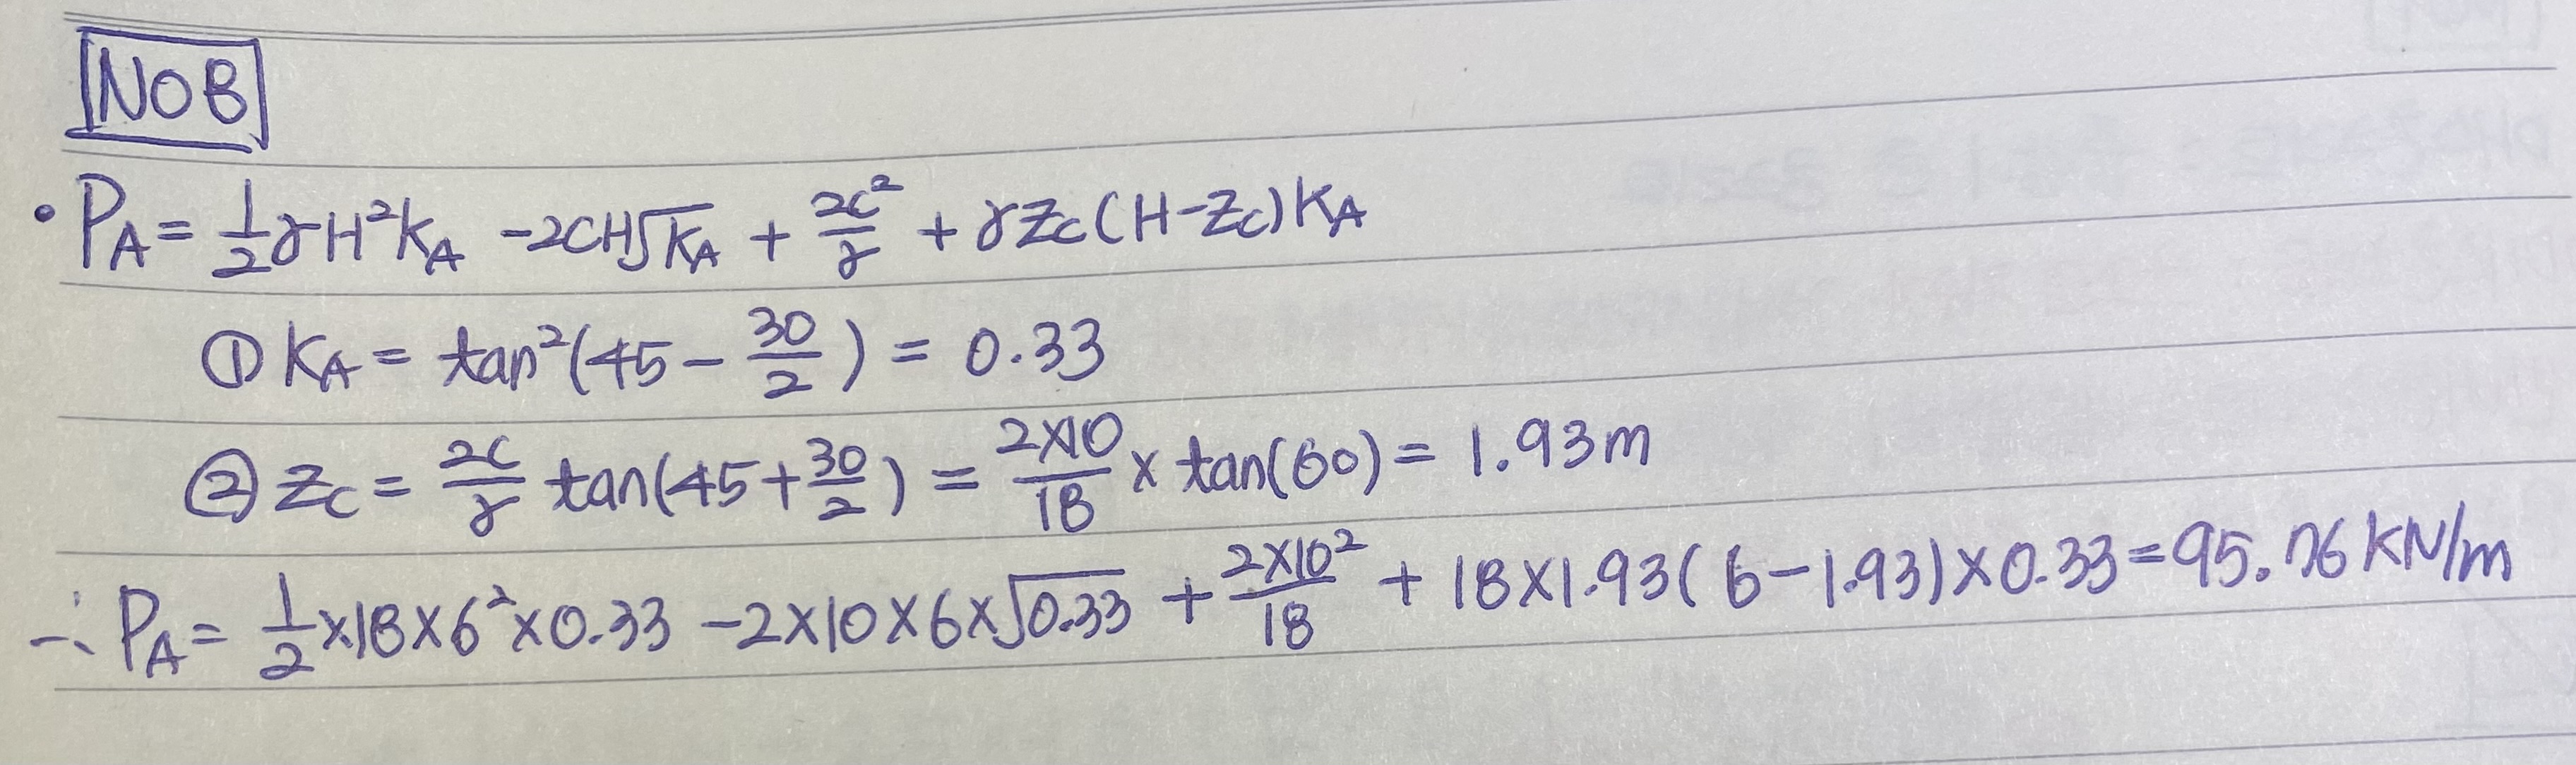 NO8
• P_A = 1/2 γH²K_A - 2CH√K_A + 2C²/γ + γZ_C(H-Z_C)K_A
① K_A = tan²(45 - 30/2) = 0.33
② Z_C = 2C/γ tan(45 + 30/2) = 2×10/18 × tan(60) = 1.93m
∴ P_A = 1/2 × 18 × 6² × 0.33 - 2×10×6×√0.33 + 2×10²/18 + 18×1.93(6-1.93)×0.33 = 95.76 KN/m